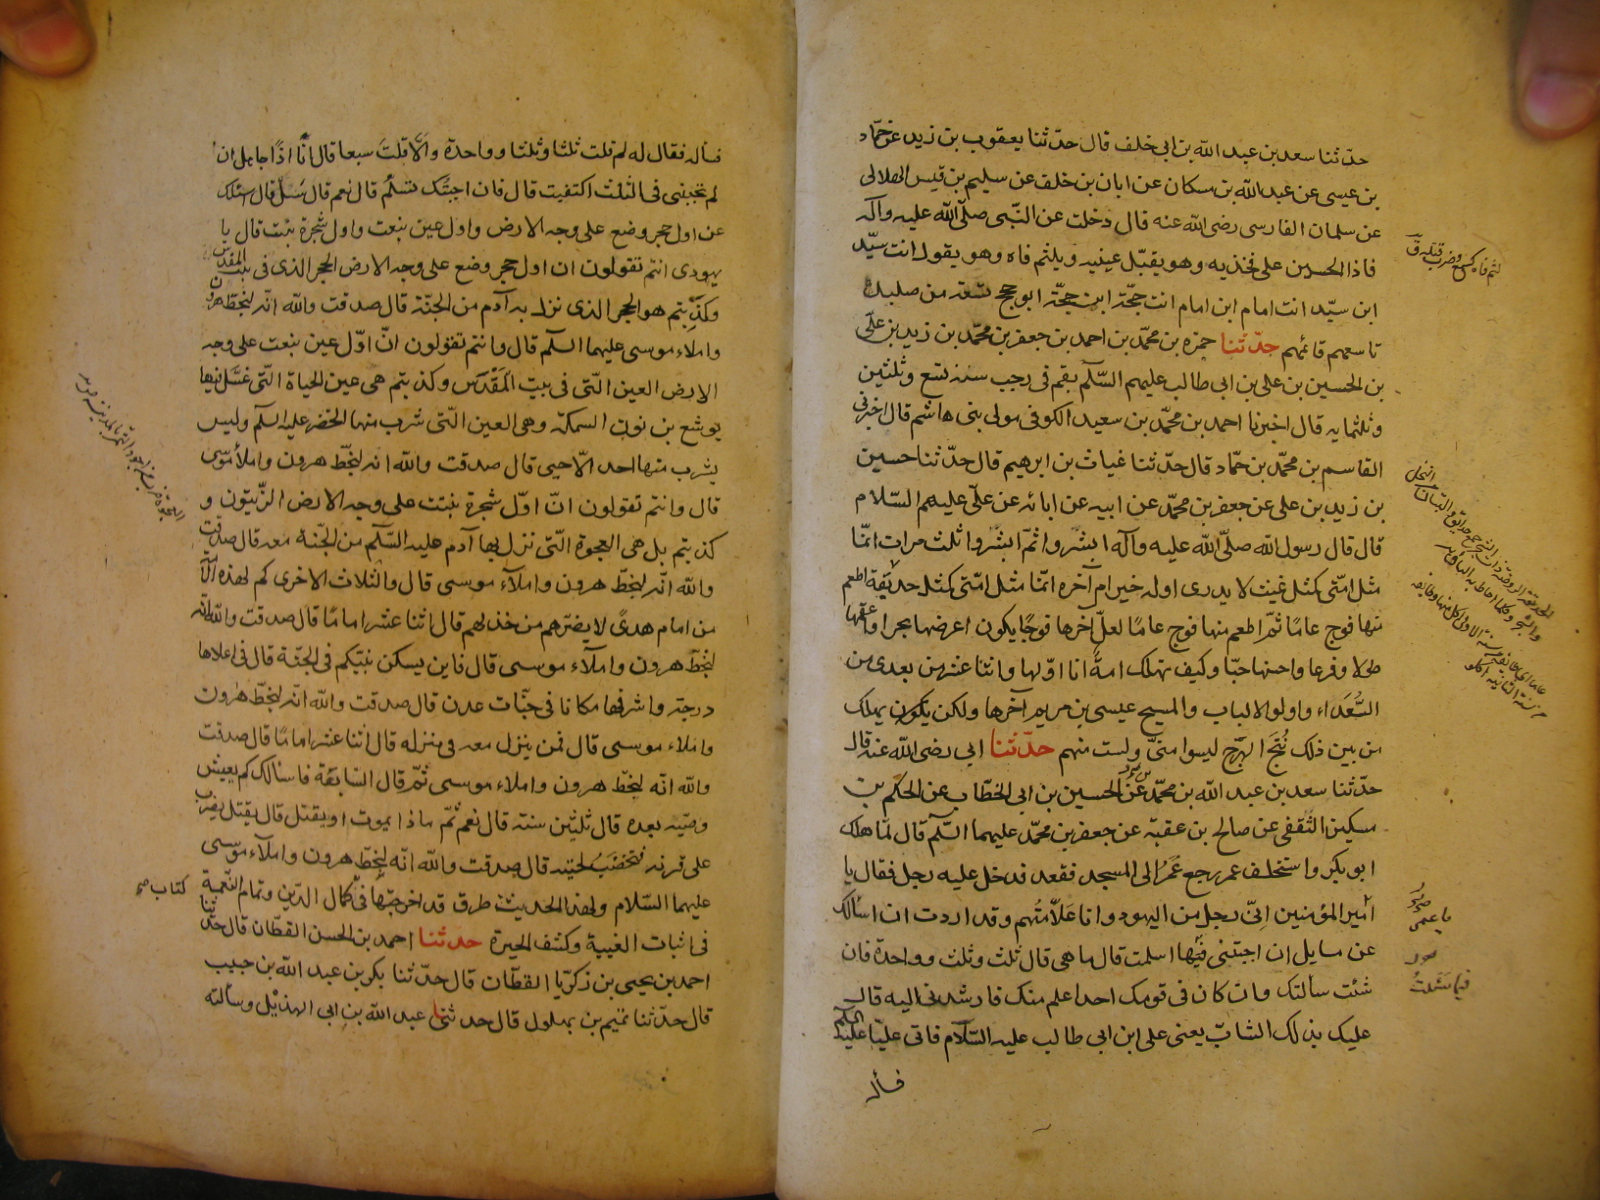 حدثنا سعد بن عبد الله بن ابى خلف قال حدّثنا يعقوب بن زيد عن حمّاد
بن عيسى عن عبد الله بن مسكان عن ابان بن خلف عن سليم بن قيس الهلالى
عن سلمان الفارسى رضى الله عنه قال دخلت عن النّبى صلّى الله عليه وآله
فاذا الحسين على فخذيه وهو يقبّل عينيه ويلثم فاه وهو يقول انت سيّد
ابن سيّد انت امام ابن امام انت حجّة ابن حجّة ابو حجج تسعة من صلبك
تاسعهم قائمهم حدّثنا حمزه بن محمّد بن احمد بن جعفر بن محمّد بن زيد بن علّى
بن الحسين بن على بن ابى طالب عليهم السّلام بقم فى رجب سنه تسع وثلثين
وثلثمايه قال اخبرنا احمد بن محمّد بن سعيد الكوفى مولى بنى هاشم قال اخبرنى
القاسم بن محمّد بن حمّاد قال حدّثنا غياث بن ابرهيم قال حدّثنا حسين
بن زيد بن على عن جعفر بن محمّد عن ابيه عن ابائه عن علّى عليهم السّلام
قال قال رسول الله صلّى الله عليه وآله ابشروا ثمّ ابشروا ثلث مرات انمّا
مثل امّتى كمثل غيث لا يدرى اوله خير ام آخره انمّا مثل امّتى كمثل حديقة اطعم
منها فوج عامًا ثمّ اطعم منها فوج عامًا لعلّ آخرها فوجًا يكون اعرضها بحرا واعمقها
طولا وفرعا واحسنها حبّا وكيف تهلك امةٌ انا اوّلها واثنا عشر من بعدى من
السُّعَدَاء واولو الالباب والمسيح عيسى بن مريم آخرها ولكن يكون يهلك
من بين ذلك نُتْجُ الهَرْج ليسوا منىّ ولست منهم حدّثنا ابي رضى الله عنه قال
حدّثنا سعد بن عبد الله بن محمّد عن الحسين بن ابى الخطّاب عن الحكم بن
مسكين الثقفى عن صالح بن عقبة عن جعفر بن محمّد عليهما السّلم قال لمّا هلك
ابو بكر واستخلف عمر رجع عُمَرُ الى المسجد فقعد فدخل عليه رجل فقال يا
امير المؤمنين اِنّى رجل من اليهود وانا علّامتُهم وقد اردت ان اسألك
عن مسايل ان اجبتنى فيها اسلمت قال ما هى قال ثلث وثلث وواحدة فان
شئت سألتك وان كان فى قومك احد اعلم منك فارشدنى اليه قال
عليك بذلك الشابّ يعنى على ابن ابى طالب عليه السّلام فاتى عليّا عليه السلم
فسأله
فسأله فقال له لم قلت ثلثا وثلثا وواحدة والّا قلتَ سبعا قال انّا اذًا جاهل ان
لم تجبنى فى الثلث اكتفيت قال فان اجبتُك تسلم قال نعم قال سَلْ قال اسئلك
عن اول حجر وضع على وجه الارض واول عين نبعت واول شجرة نبتت قال يا
يهودى انتم تقولون ان اول حجر وضع على وجه الارض الحجر الذى فى بيت المقدس
وكذبتم هو الحجر الذى نزل به آدم من الجنّة قال صدقت والله انّه لبخطّ هرون
واملاء موسى عليهما السلم قال وانتم تقولون انّ اوّل عين نبعت على وجه
الارض العين التّى فى بيت المَقْدَس وكذبتم هى عين الحياة التّى غسّل فيها
يوشع بن نون السمكة وهى العين التّى شرب منها الخضر عليه السلم وليس
يشرب منها احد الّا حيى قال صدقت والله انه لبخطّ هرون واملأ موسى
قال وانتم تقولون انّ اوّل شجرة نبتت على وجه الارض الزّيتون و
كذبتم بل هى العجوة التّى نزل بها آدم عليه السّلم من الجنّة معه قال صدقت
والله انّه لبخطّ هرون واملآء موسى قال والثلاث الاخرى كم لهذه الامّة
من امام هدىً لا يضرّهم من خذلهم قال اثنا عشر امامًا قال صدقت والله انّه
لبخطّ هرون واملآء موسى قال فاين يسكن نبيّكم فى الجنّة قال فى اعلاها
درجة واشرفها مكانا فى جنّات عدن قال صدقت والله انّه لبخطّ هرون
واملاء موسى قال فمن ينزل معه فى منزله قال اثنا عشر امامًا قال صدقت
والله انّه لبخطّ هرون واملاء موسى ثمّ قال السّابعة فاسألك كم يعيش
وصيّه بعده قال ثلثين سنة قال نعم ثمّ ماذا يموت او يقتل قال يقتل يضرب
على قرنه فتخضب لحيته قال صدقت والله انّه لبخطّ هرون واملآء موسى
عليهما السّلام ولهذا الحديث طرق قد اخرجتها فى كمال الدّين وتمام النّعمة
فى اثبات الغيبة وكشف الحيرة حدثنا احمد بن الحسن القطّان قال حدّثنا
احمد بن يحيى بن زكريّا القطّان قال حدّثنا بكر بن عبد الله بن حبيب
قال حدّثنا تميم بن بهلول قال حدثنى عبد الله بن ابى الهذيل وسألته
كتاب صح